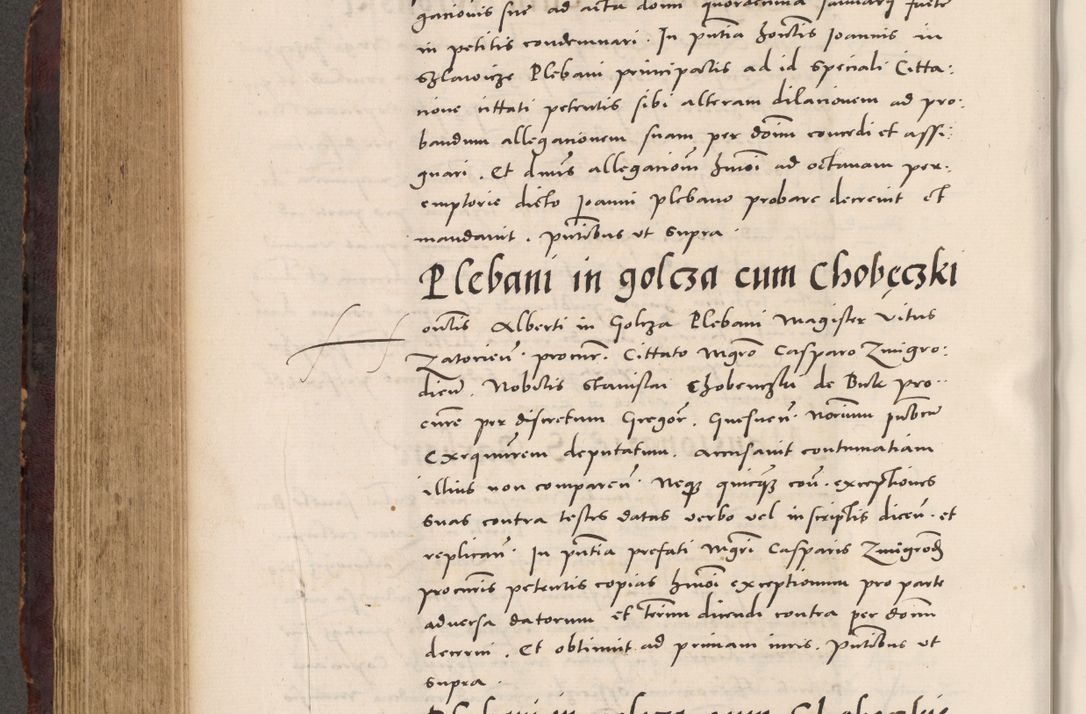 gacionis sue ad acta domi quordenina Januarij fuete
in petitis condemnari. In pntia honesti Joannis in
Szlawicze Plebani principalis ad id speciali Citta:
cione cittati petentis sibi alteram dilacionem ad pro:
bandum allegacionem suam per dominum concedi et assi:
gnari. Et dnus allegacionem hmoi ad octavam per:
emptorie dicto Joanni plebano probare decrevit et
mandavit. pntibus ut supra.
Plebani in golcza cum Chobęczki
Alberti in Golcza Plebani Magister Vitus
Zatorien. procur. Cittato Mgro Casparo Zmigro:
dien. Nobilis Stanislai Chobenczki de pro:
curē per discretum Gregor. Gnesnen. Notarium publicum
Exequutorem deputatum. Accusavit contumatiam
illius non comparen. Neque quicquam con. exceptiones
suas contra testes datas verbo vel in scriptis dicen. et
replican. In pntia prefati Mgri Casparis Zmigrod
procuris petentis copias hmoi exceptionum pro parte
adversa datorum et termi dicendi contra per domi
decerni. Et obtinuit ad primam iuris. Pntibus ut
supra.
Plebani in golcza cum Chobeczkie